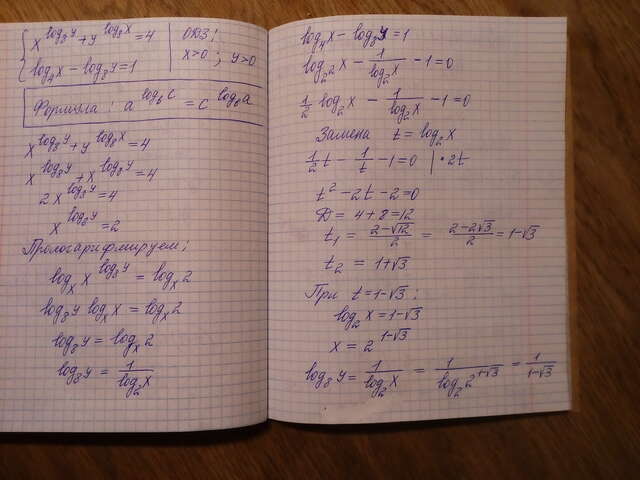 { x^{log₈y} + y^{log₈x} = 4 | ОДЗ:
log₄x - log₈y = 1 | x>0; y>0
Формула: a^{log_b c} = c^{log_b a}
x^{log₈y} + y^{log₈x} = 4
x^{log₈y} + x^{log₈y} = 4
2x^{log₈y} = 4
x^{log₈y} = 2
Прологарифмируем:
logₓ x^{log₈y} = logₓ 2
log₈y logₓx = logₓ2
log₈y = logₓ2
log₈y = 1/log₂x
log₄x - log₈y = 1
log_{2^2} x - 1/log₂x - 1 = 0
1/2 log₂x - 1/log₂x - 1 = 0
Замена t = log₂x
1/2 t - 1/t - 1 = 0 | · 2t
t² - 2t - 2 = 0
D = 4 + 8 = 12
t₁ = (2-√12)/2 = (2-2√3)/2 = 1-√3
t₂ = 1+√3
При t = 1-√3:
log₂x = 1-√3
x = 2^{1-√3}
log₈y = 1/log₂x = 1/log₂2^{1-√3} = 1/(1-√3)